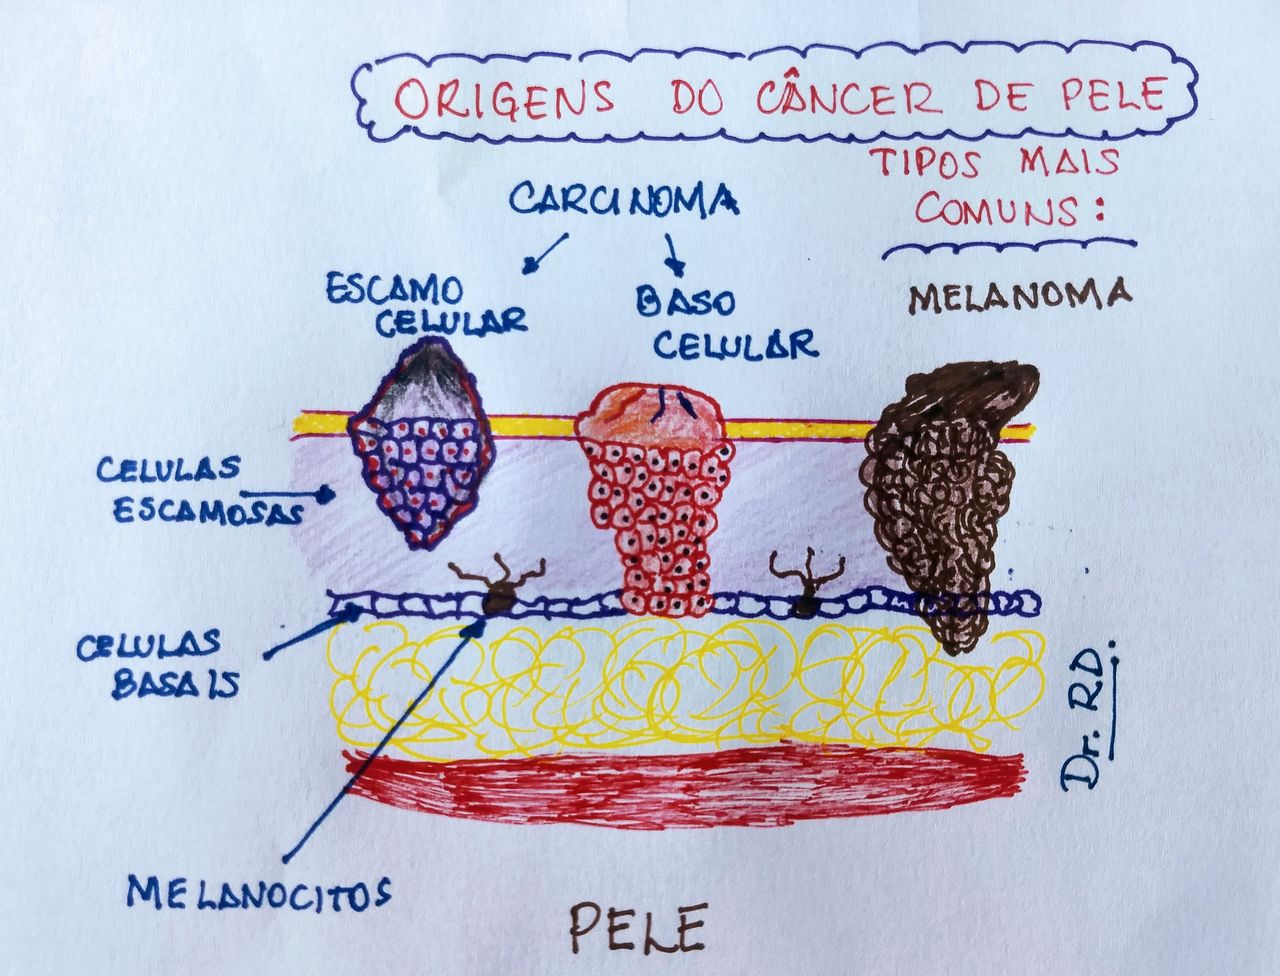 ORIGENS DO CÂNCER DE PELE
TIPOS MAIS
COMUNS:
CARCINOMA
ESCAMO
CELULAR
BASO
CELULAR
MELANOMA
CELULAS
ESCAMOSAS
CELULAS
BASAIS
MELANOCITOS
PELE
Dr. R.D.